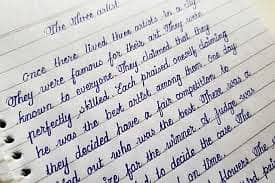 The three artist
Once there lived three artists in a city.
They were famous for their art. They were
known to everyone. They claimed that they
perfectly skilled. Each praised oneself claiming
he was the best artist among them. One day
they decided have a fair competition to
out who was the best. There was a
for the winner. A judge was
to decide the case. The
on time.
flowers